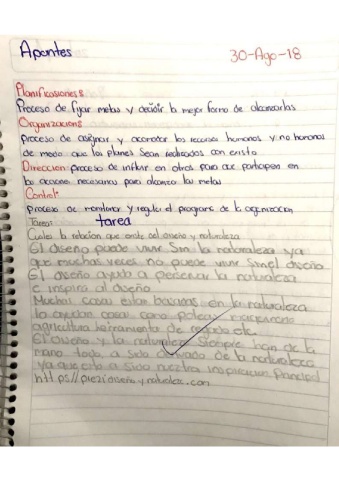 Apuntes
30-Ago-18
Planificasiones:
Proceso de fijar metas y decidir la mejor forma de alcanzarlas
Organizacions
proceso de asignar y acomodar los recursos humanos y no humanos
de modo que los planes sean realizados con exito
Direccion: proceso de influir en otros para que participen en
las acciones necesarias para alcanzar las metas
Control:
proceso de monitorear y regular el progreso de la organizacion
Tarea: tarea
Cual es la relacion que existe del diseño y naturaleza
El diseño puede vivir sin la naturaleza ya
que muchas veces no puede vivir sin el diseño
El diseño ayuda a la naturaleza
e inspira al diseño
Muchas cosas estan basadas en la naturaleza
lo ayudan cosas como
agricultura herramienta de regado etc.
El diseño y la naturaleza siempre han de la
mano todo a sido derivado de la naturaleza
ya que a sido nuestra inspiracion
https//prezi diseño y naturaleza.com